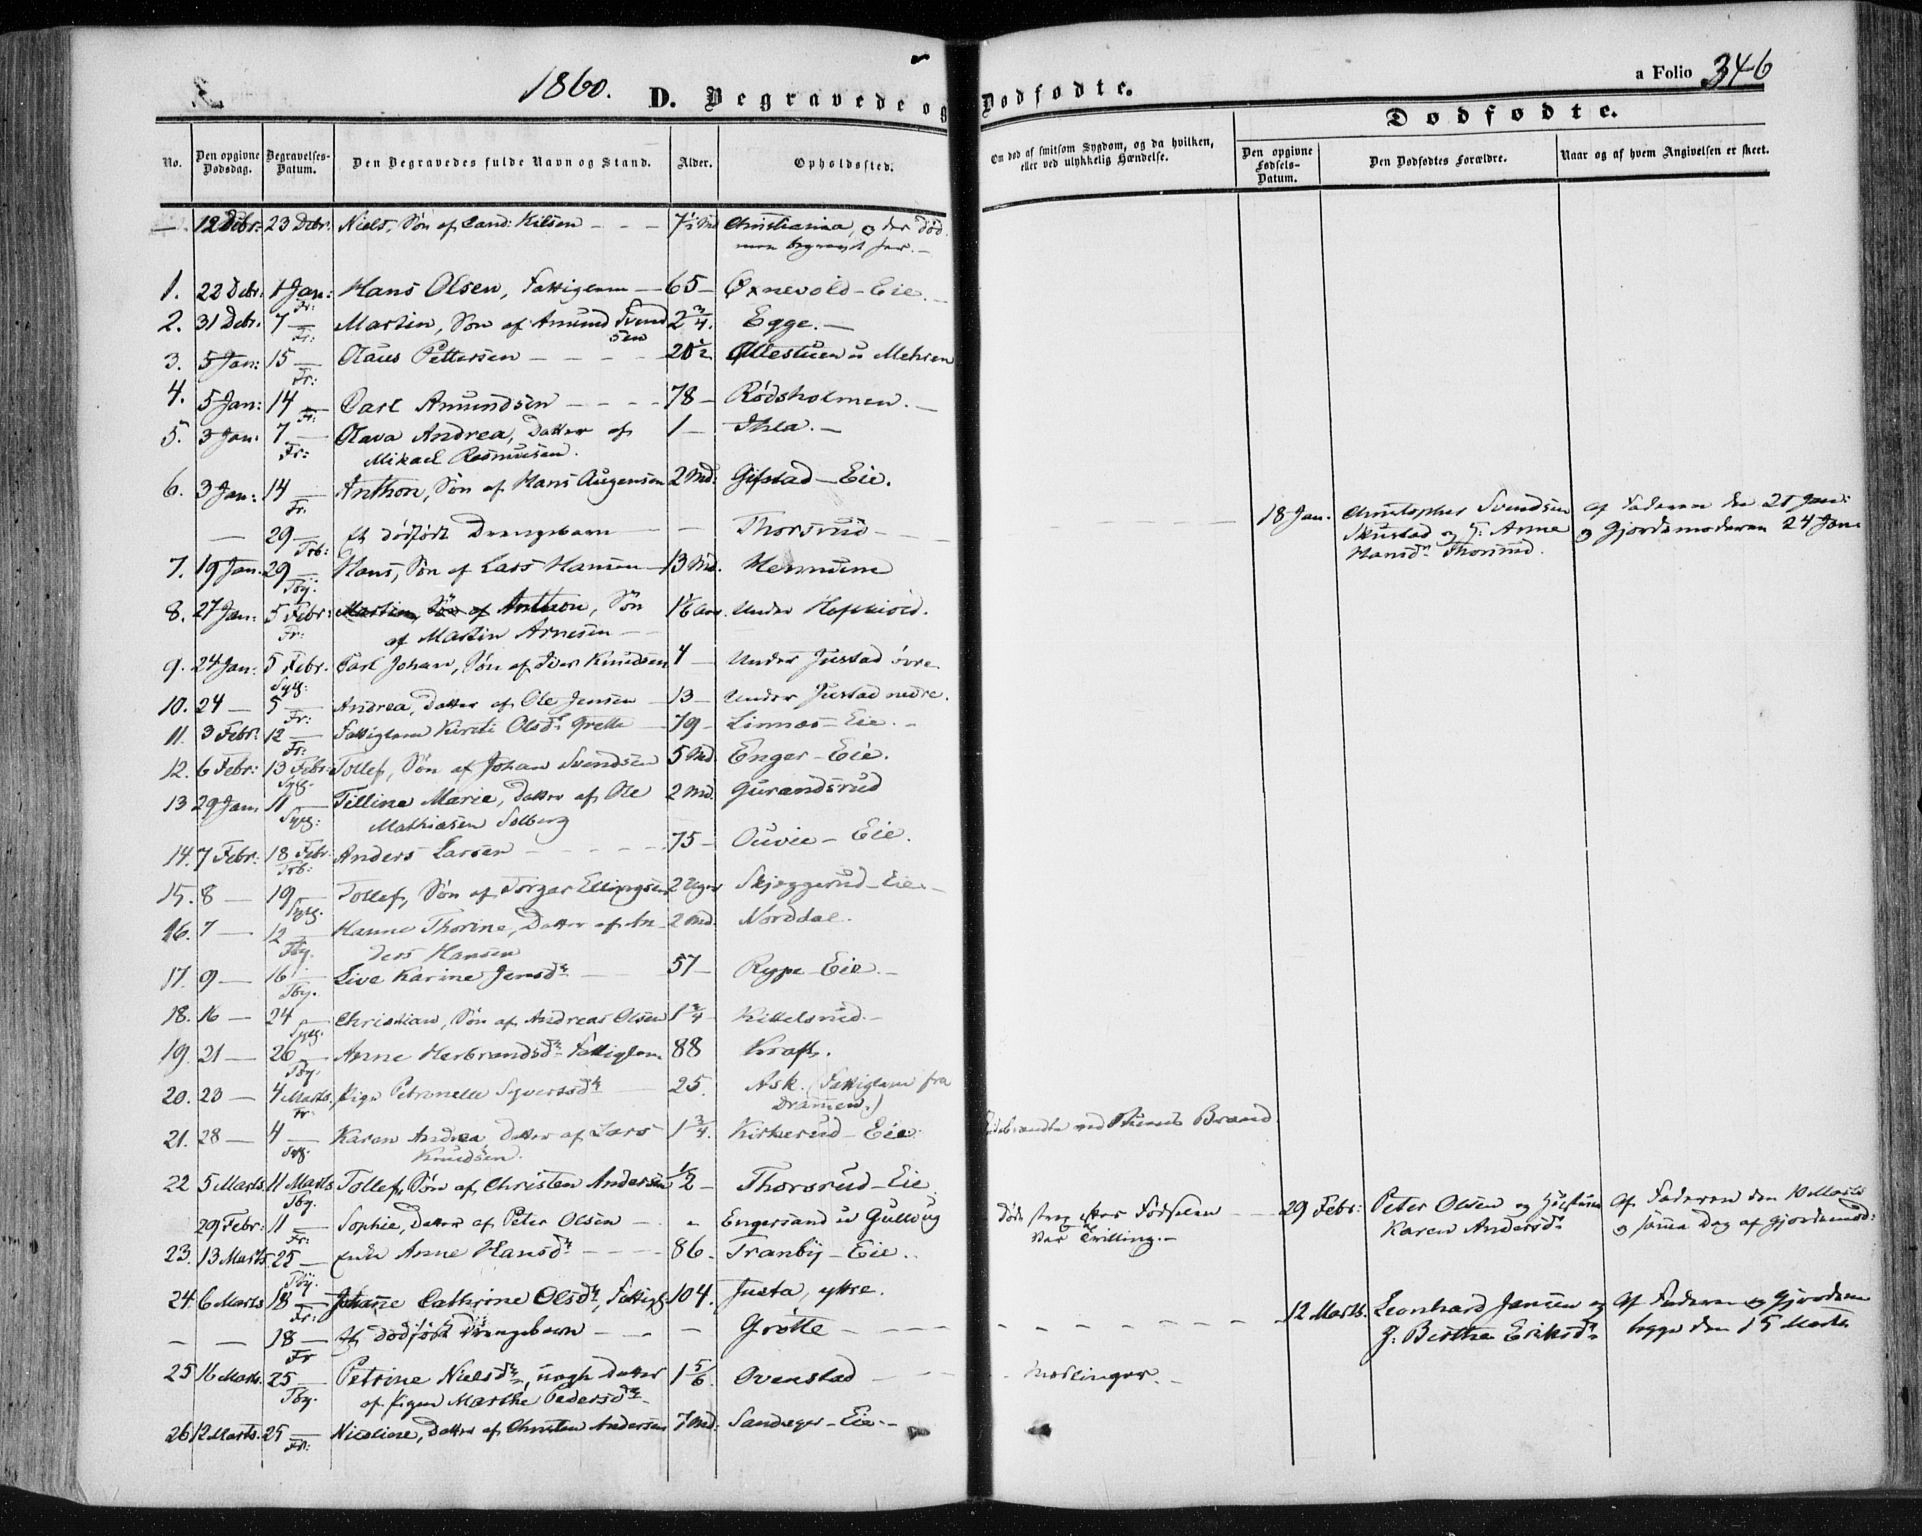 1860.
D. Begravede og Dødfødte.
a Folio 346
Dødfødte.
No.
Den opgivne Dødsdag.
Begravelses-Datum.
Den Begravedes fulde Navn og Stand.
Alder.
Opholdssted.
Om død af smitsom Sygdom, og da hvilken, eller ved ulykkelig Hændelse.
Den opgivne Fødsels-Datum.
Den Dødfødtes Forældre.
Naar og af hvem Angivelsen er skeet.
— 12 Debr: 23 Debr. Niels, Søn af Cand: Kilsen - - - 7½ Md Christiania, o der død
men begravet her. —
1. 22 Debr: 1 Jan: Hans Olsen, Fattiglem — 65 — Øxnevold-Eie. —
Fr:
2. 31 Debr. 7 — Martin, Søn af Amund Svend 2¾. Egge. —
Fr: sen
3. 5 Jan: 15 — Olaus Pettersen - - - - 20½ Øllestuen u Mehren
Fr:
4. 5 Jan: 14 — Carl Amundsen - - - - 78 — Rødsholmen. —
Fr:
5. 3 Jan: 7 — Olava Andrea, Datter af 1 — Ihla. —
Fr: Mikael Rasmussen.
6. 3 Jan: 14 — Anthon, Søn af Hans Augensen 2 Md: Gifstad — Eie.
Fr:
— 29 — et dødfødt Drengebarn — — Thorsrud - - - 18 Jan. Christopher Svendsen af Faderen den 21 Jan:
Trb: Skustad og H: Anne o Gjordemoderen 24 Jan.
Hansdr Thorsrud.
7. 19 Jan. 29 — Hans, Søn af Lars Hansen — 13 Md. Hennum
Tby:
8. 27 Jan: 5 Febr: Martin, Søn af Anthon, Søn 16 Under Hofsvold.
Fr: af Martin Arnesen —
9. 24 Jan: 5 Febr. Carl Johan, Søn af Iver Knudsen 4 — Under Justad øvre
Sylg:
10. 24 — 5 — Andrea, Datter af Ole Jensen — 13 — Under Justad nedre.
Fr:
11. 3 Febr: 12 — Fattiglem Kirsti Olsdr Grette — 79 — Linnæs-Eie. —
Fr:
12. 6 Febr: 13 Febr Tollef, Søn af Johan Svendsen 5 Md Enger-Eie.
Sylg.
13 29 Jan. 11 — Tilline Marie, Datter af Ole 2 Md. Gurandsrud
Sylg: Mathiesen Solberg
14. 7 Febr: 18 Febr Anders Larsen - - - - 75 — Ouvie — Eie.
Trb:
15. 8 — 19 — Tollef, Søn af Torger Ellingsen 2 Uger Skjeggerud-Eie —
Sylg.
16. 7 — 12 — Hanne Thorine, Datter af An- 2 Md. Norddal.
Tby. ders Hansen
17. 9 — 16 — Live Karine Jensdr — 57 — Rype-Eie. —
Tby.
18. 16 — 24 — Christian, Søn af Andreas Olsen 1¾ Kittelsrud. —
Sylg
19. 21 — 26 — Anne Herbrandsdr Fattiglem 88 Kraft.
Tby.
20. 23 — 4 Marts. Pige Petronelle Syvertsdr — 25. Ask. (Fattiglem fra
Fr. Dramen.)
21. 28 — 4 — Karen Andrea, Datter af Lars 1¾. Kirkerud-Eie. Brand.
Sylg. Knudsen.
22 5 Marts. 11 Marts Tollef, Søn af Christen Andersen ½ — Thorsrud-Eie
Tby.
29 Febr: 11 — Sophie, Datter af Peter Olsen — — „ Engersand u Gulloug Døde strax efter Fødselen - - 29 Febr: Peter Olsen og Hustru Af Faderen den 10 Marts
Fr: Var Tvilling. — Karen Andersdr o samme Dag af Gjordemod:
23. 13 Marts. 25 — Enke Anne Hansdr - - - 86. Tranby-Eie.
Tby.
24. 6 Marts 18 — Johanne Cathrine Olsdr, Fattigl 104. Justa, ytre.
Fr:
— — 18 — et dødfødt Drengebarn - - — Grøtte - - - 12 Marts. Leonhard Jansen og Af Faderen og Gjordem
Fr H. Berthe Eriksdr begge den 15 Marts
25 16 Marts. 25 — Petrine Nielsdr, uægte Datter 1⅚. Ovenstad - - - Meslinger. —
Tby. af Pigen Marthe Pedersdr
26 12 Marts. 25 — Nicoline, Datter af Christen Andersen 7 Md: Sandager-Eie. —
Fr: